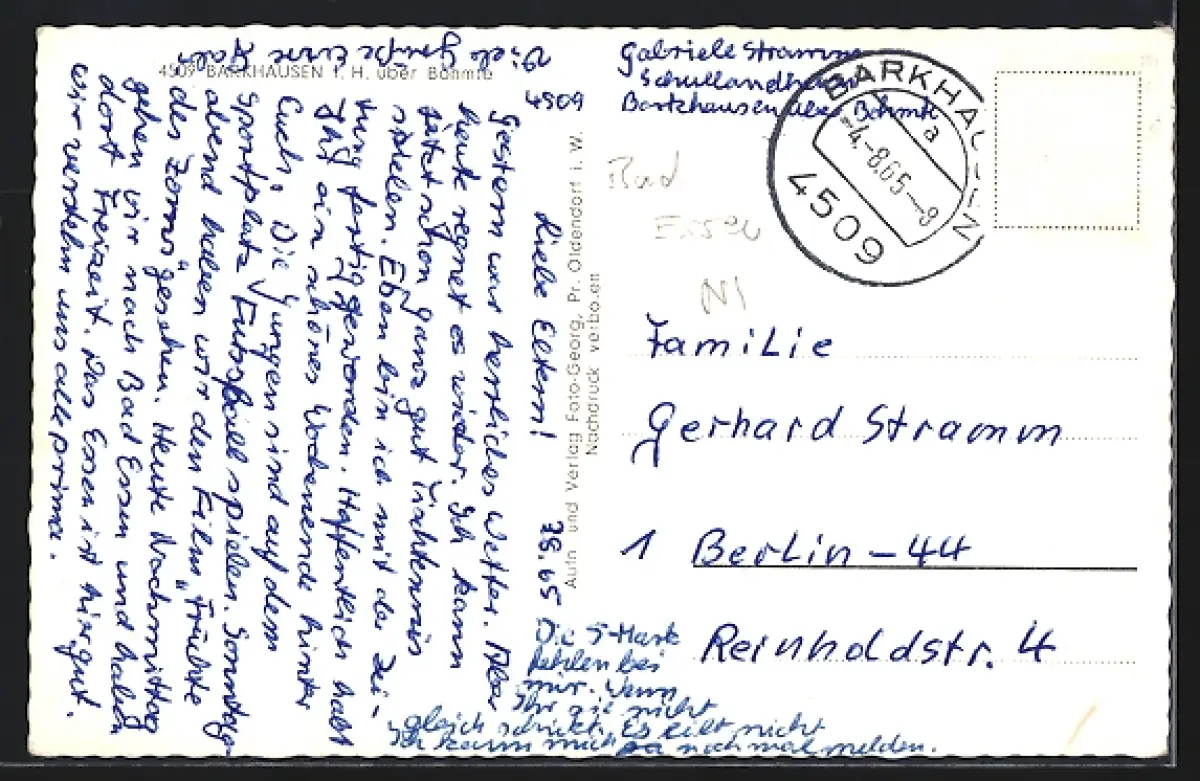 Gabriele Stramm
Schullandheim
4509 Barkhausen über Bohmte
4509 BARKHAUSEN i. H. über Bohmte
BARKHAUSEN
a
-4.-8.65-9
4509
Bad
Essen
NI
Familie
Gerhard Stramm
1 Berlin-44
Reinholdstr. 4
Autn und Verlag Foto-Georg, Pr. Oldendorf i. W.
Nachdruck verboten
3.8.65
Liebe Eltern!
Gestern war herrliches Wetter. Aber
heute regnet es wieder. Ich kann
jetzt schon ganz gut Tischtennis
spielen. Eben bin ich mit der Zei-
tung fertig geworden. Hoffentlich habt
Ihr ein schönes Wochenende hinter
Euch. Die Jungen sind auf dem
Sportplatz Fußball spielen. Sonntag
abend haben wir den Film "Früchte
des Zorns" gesehen. Heute Nachmittag
gehen wir nach Bad Essen und haben
dort Freizeit. Das Essen ist hier gut.
Wir verstehn uns alle prima.
Viele Grüße Eure Gabi
Die 5-Mark
fehlen bei
mir. Wenn
Ihr sie nicht
gleich schickt. Es eilt nicht
Ich kann mich ja nochmal melden.